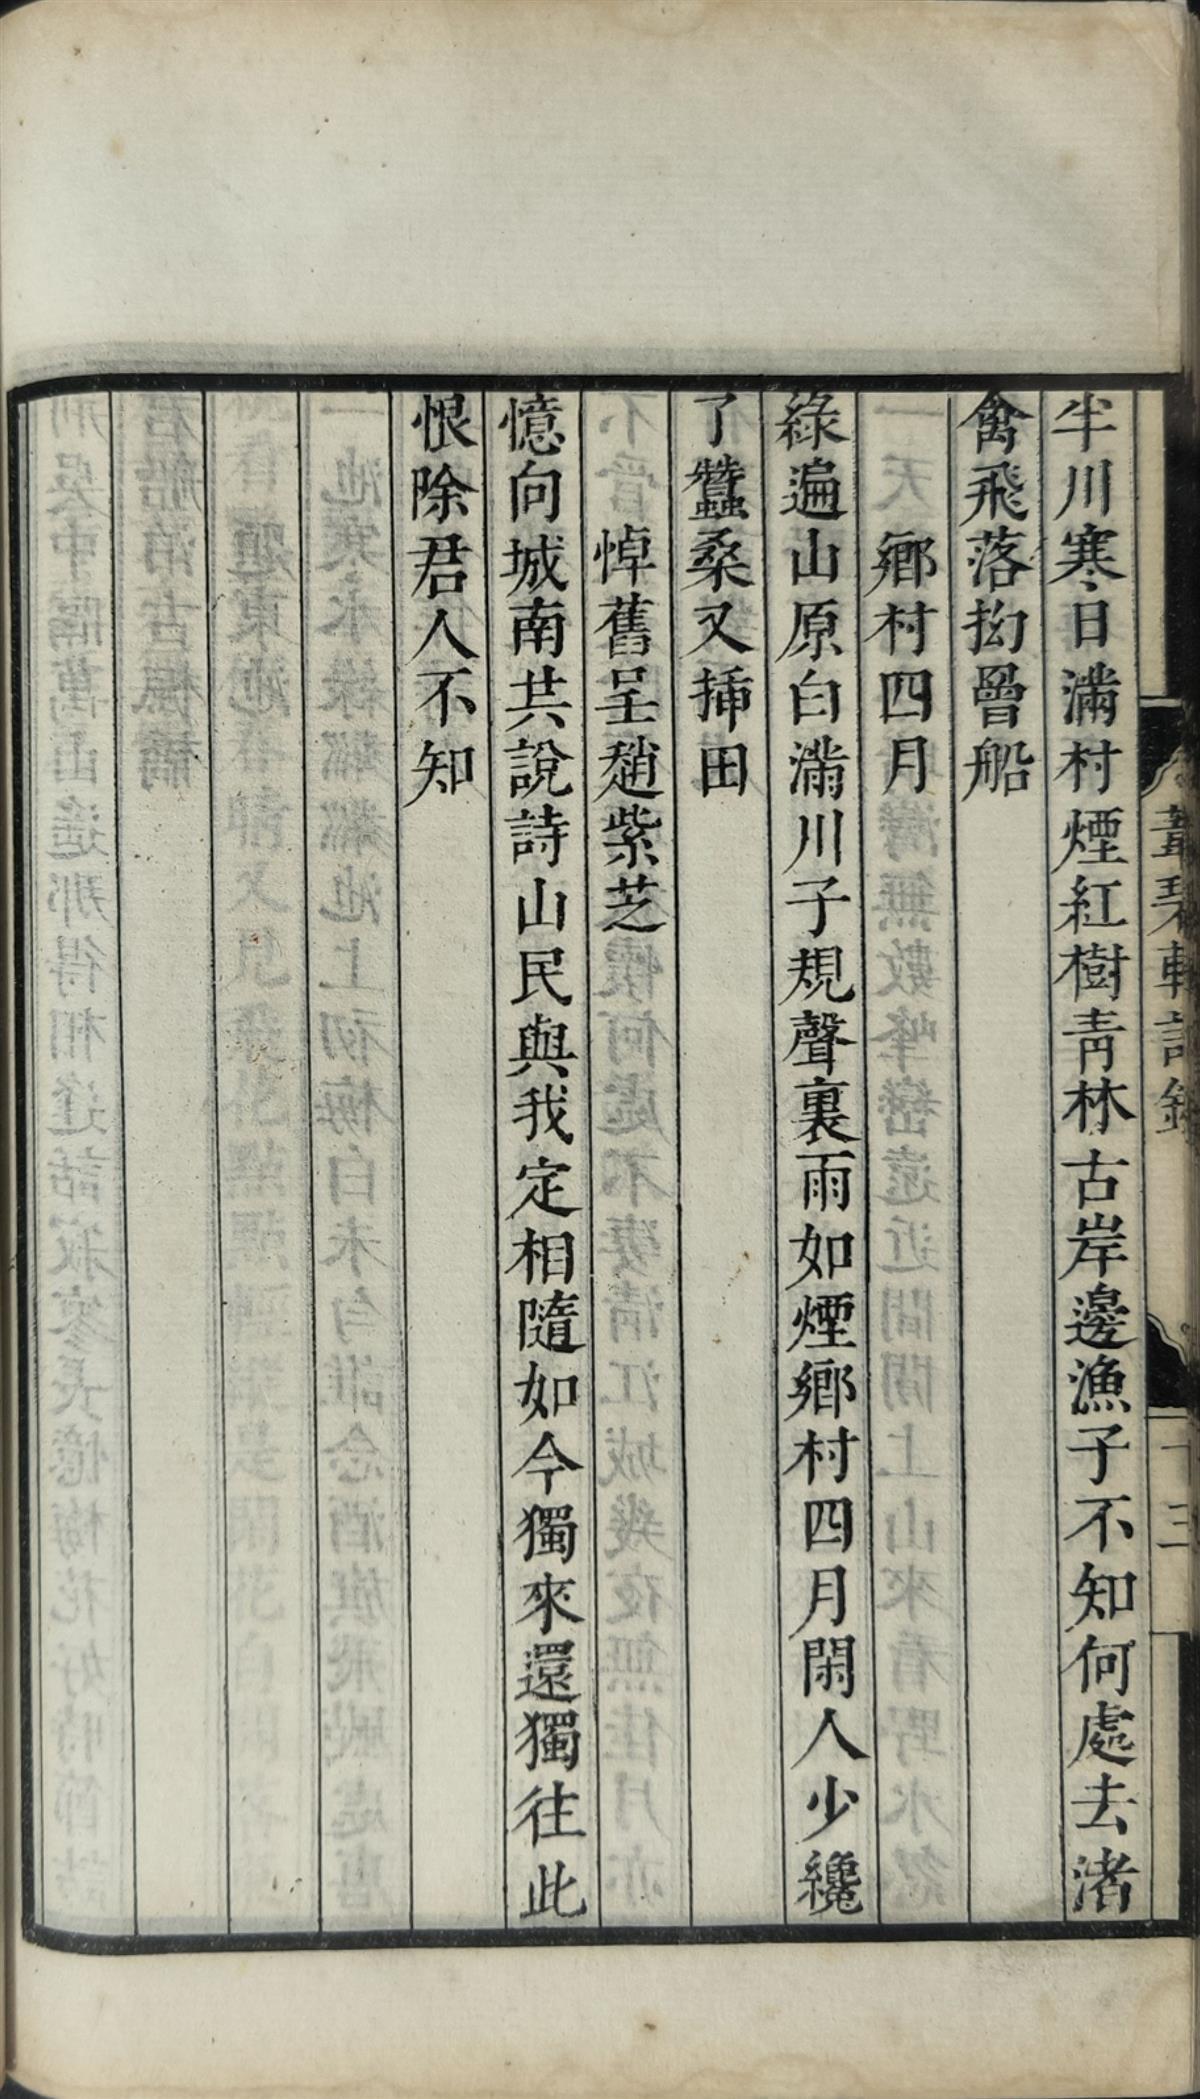 葦碧軒詩鈔
十三
半川寒日滿村煙紅樹青林古岸邊漁子不知何處去渚
禽飛落拗罾船
鄉村四月
綠遍山原白滿川子規聲裏雨如煙鄉村四月閑人少纔
了蠶桑又揷田
悼舊呈趙紫芝
憶向城南共說詩山民與我定相隨如今獨來還獨往此
恨除君人不知